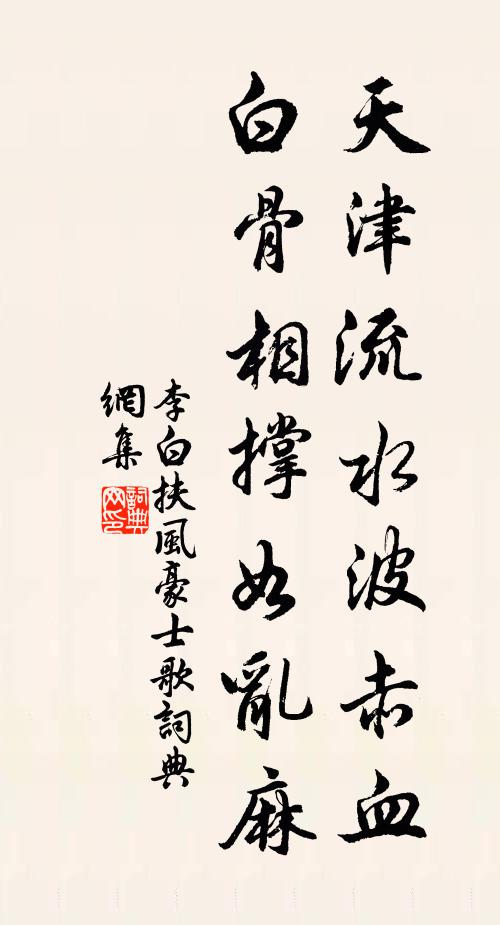 天津流水波赤血
白骨相撐如亂麻
李白扶風豪士歌詞典
網集
詞典网印